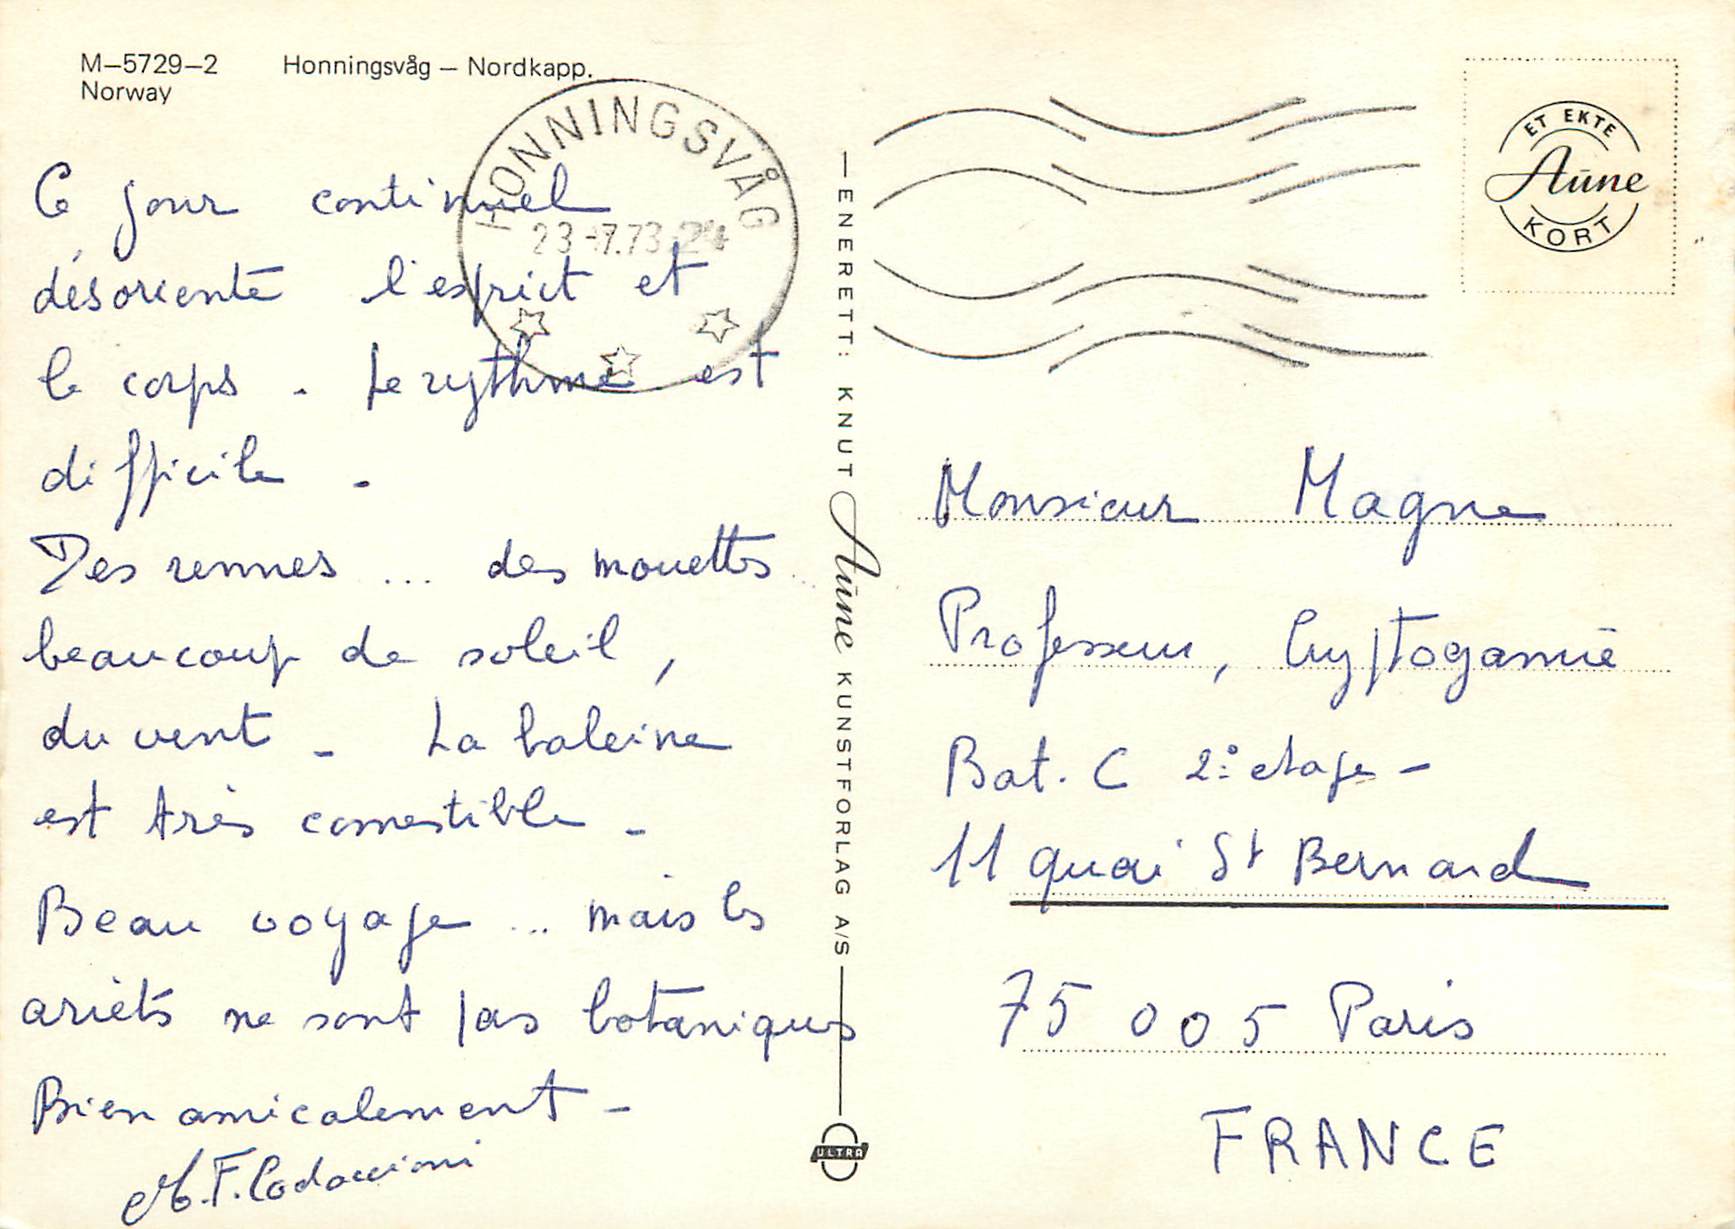 M–5729–2 Honningsvåg – Nordkapp.
Norway
HONNINGSVÅG
23 -7.73.24
Ce jour continuel
désoriente l'esprit et
le corps . Le rythme est
difficile .
Des rennes ... des mouettes ..
beaucoup de soleil ,
du vent – La baleine
est très comestible –
Beau voyage ... mais les
arrêts ne sont pas botaniques
Bien amicalement –
M.F. Codaccioni
— ENERETT: KNUT Aune KUNSTFORLAG A/S —
ULTRA
ET EKTE
Aune
KORT
Monsieur Magne
Professeur, Cryptogamie
Bat. C 2° etage –
11 quai St Bernard
75 005 Paris
FRANCE